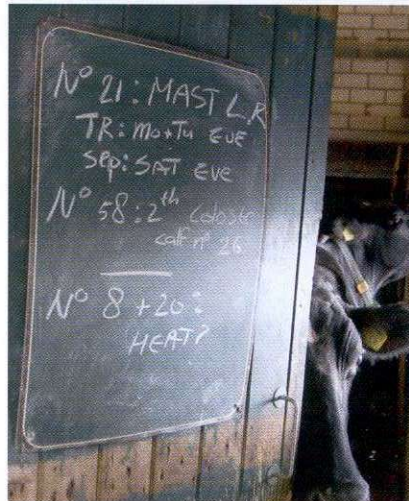 Nº 21: MAST L.R
TR: Mo+Tu EVE
Sep: SAT EVE
Nº 58: 2th Coloste
calf nº 26
Nº 8 + 20:
HEAT?